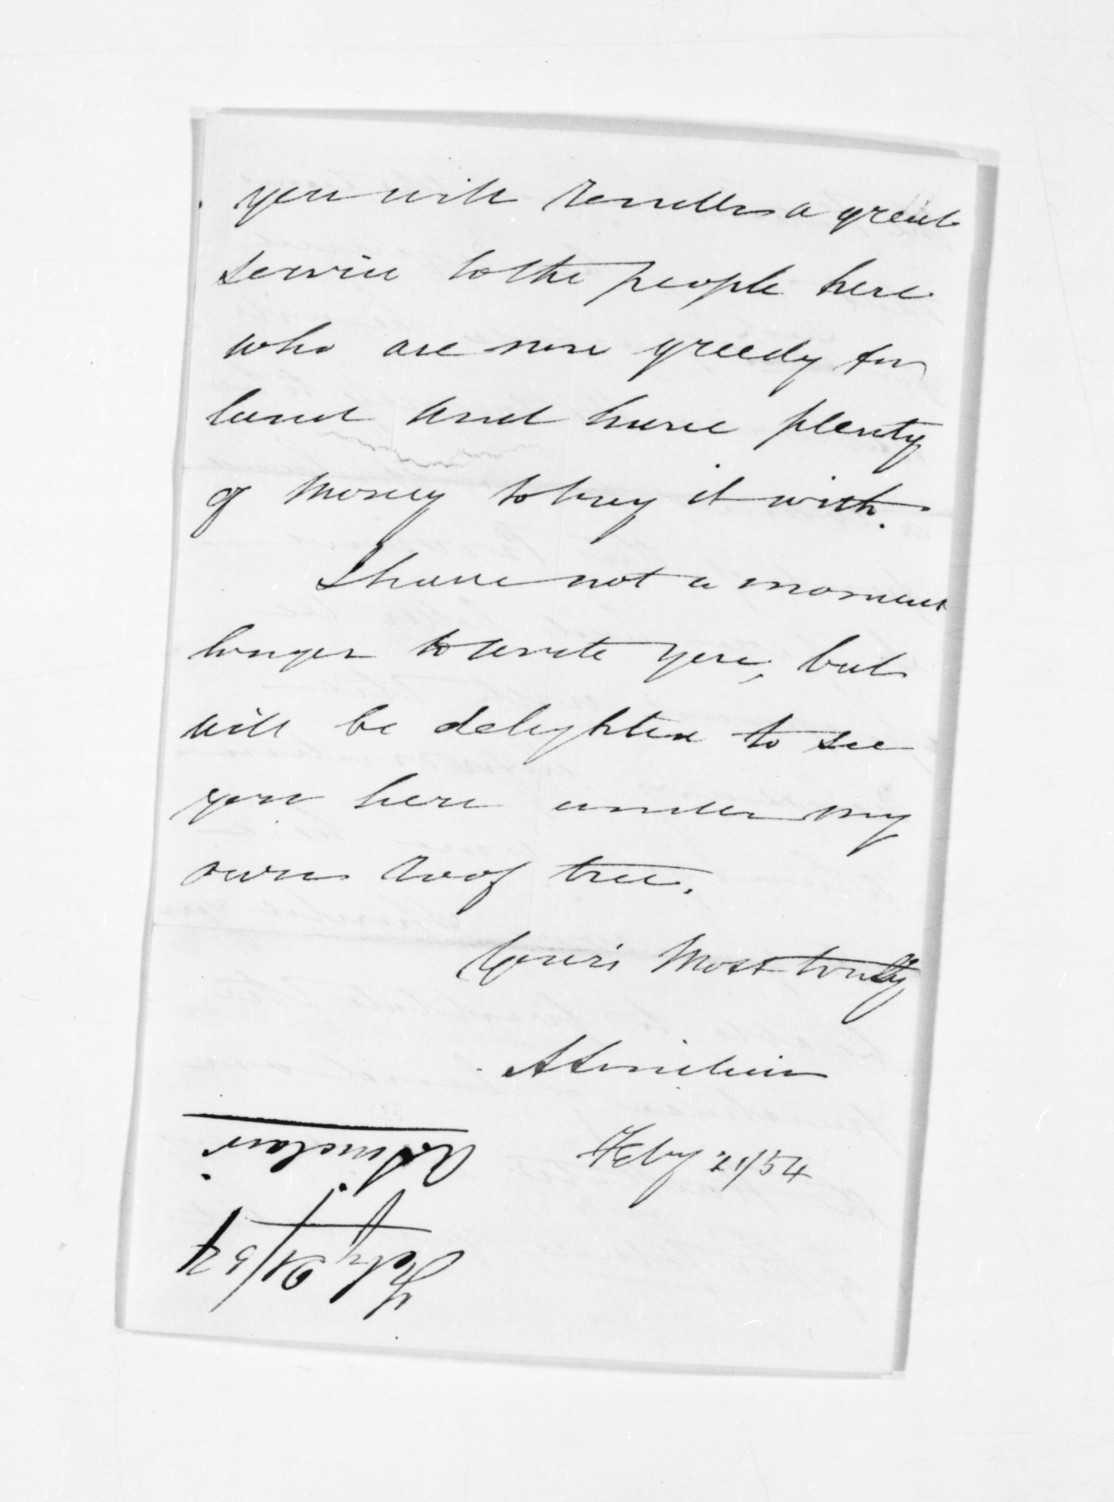 you will render a great
service to the people here
who are now greedy for
land and have plenty
of money to buy it with.
I have not a moment
longer to write you, but
will be delighted to see
you here under my
own roof tree.
Your's most truly
A Sinclair
Feby 21/54
A Sinclair
Feby 21/54